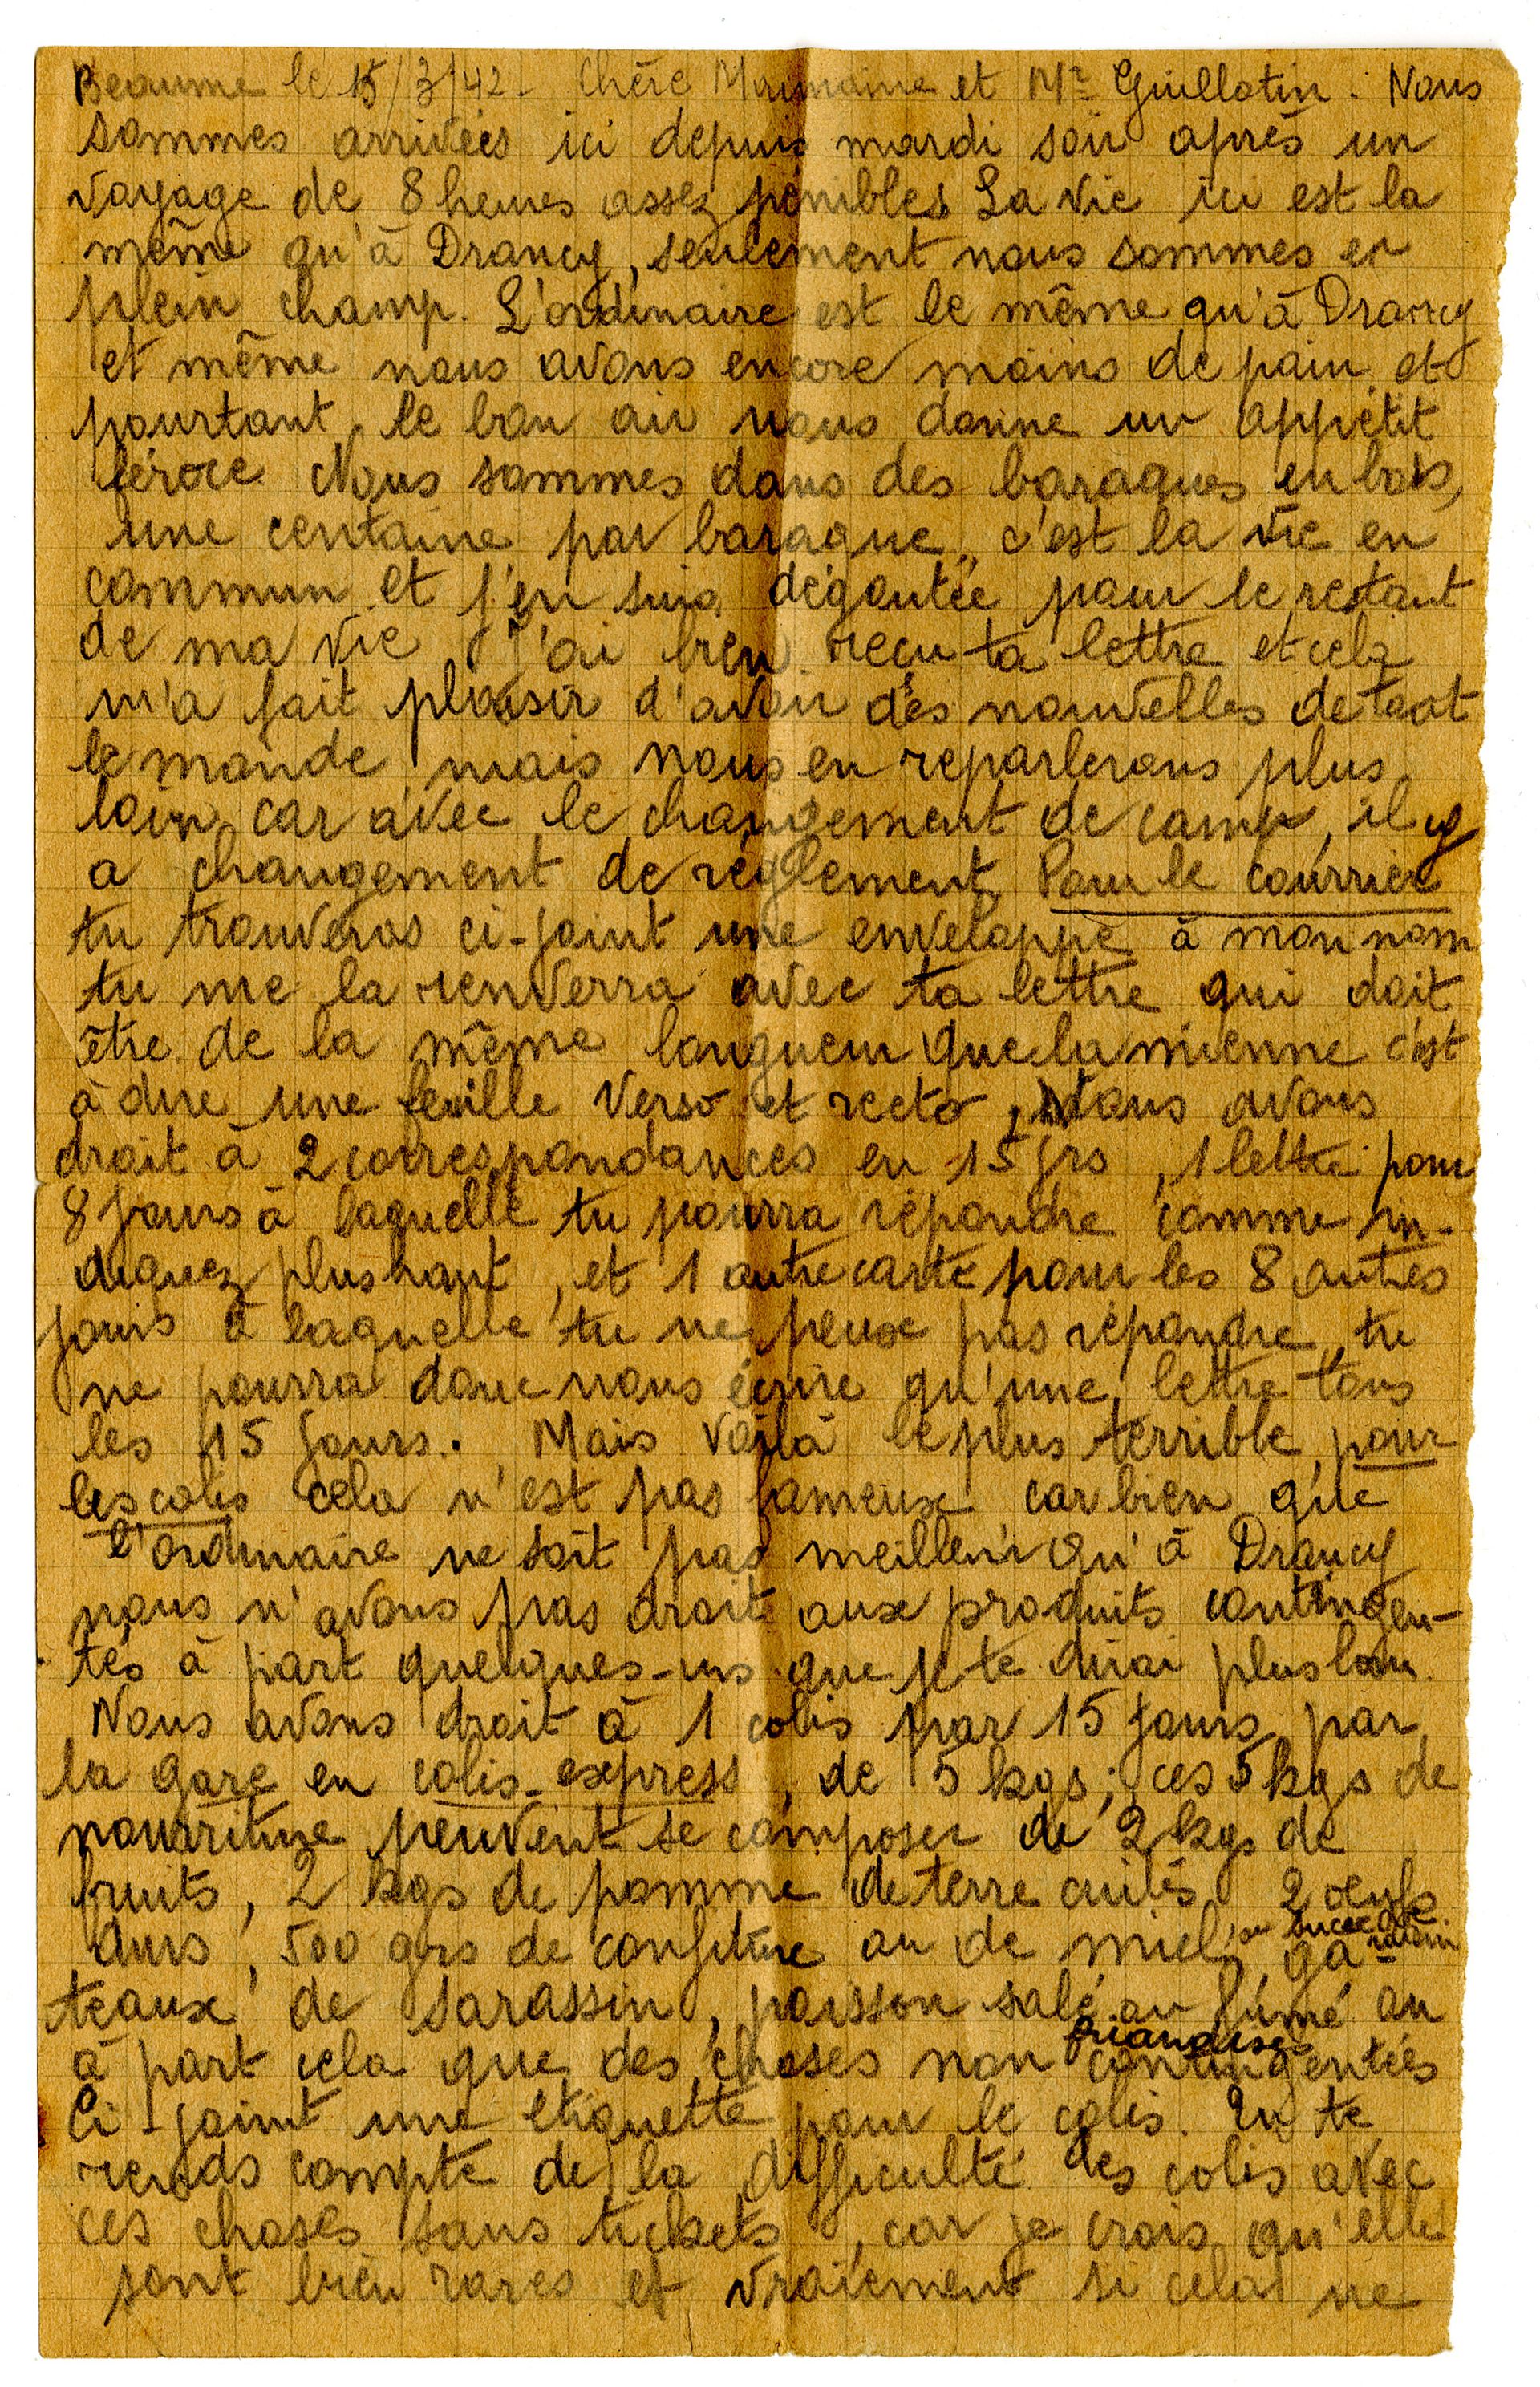 Beaune le 15/3/42 - Chère Marraine et Mr Guillotin. Nous
sommes arrivées ici depuis mardi soir après un
voyage de 8 heures assez pénibles La vie ici est la
même qu'à Drancy, seulement nous sommes en
plein champ. L'ordinaire est le même qu'à Drancy
et même nous avons encore moins de pain et
pourtant le bon air nous donne un appétit
féroce Nous sommes dans des baraques en bois,
une centaine par baraque, c'est la vie en
commun et j'en suis dégoutée pour le restant
de ma vie J'ai bien reçu ta lettre et cela
m'a fait plaisir d'avoir des nouvelles de tout
le monde mais nous en reparlerons plus
loin car avec le changement de camp, il y
a changement de règlement. Pour le courrier
tu trouveras ci-joint une enveloppe à mon nom
tu me la renverra avec ta lettre qui doit
être de la même longueur que la mienne c'est
à dire une feuille verso et recto, Nous avons
droit à 2 correspondances en 15 jrs, 1 lettre pour
8 jours à laquelle tu pourra répondre comme in-
diquez plus haut, et 1 autre carte pour les 8 autres
jours à laquelle tu ne peux pas répondre, tu
ne pourra donc nous écrire qu'une lettre tous
les 15 jours. Mais voilà le plus terrible pour
les colis cela n'est pas fameux car bien que
l'ordinaire ne soit pas meilleur qu'à Drancy
nous n'avons pas droit aux produits contingen-
tés à part quelques-uns que je te dirai plus loin.
Nous avons droit à 1 colis par 15 jours par
la gare en colis-express, de 5 kgs; ces 5 kgs de
nourriture peuvent se composer de 2 kgs de
fruits, 2 kgs de pomme de terre cuites, 2 oeufs
durs, 500 grs de confiture ou de miel, ou sucre de raisin ga-
teaux de sarassin, poisson salé ou fumé ou
à part cela que des choses non contingentées friandises
Ci-joint une étiquette pour le colis. Tu te
rends compte de la difficulté des colis avec
ces choses sans tickets, car je crois qu'elle
sont bien rares et vraiment si cela ne